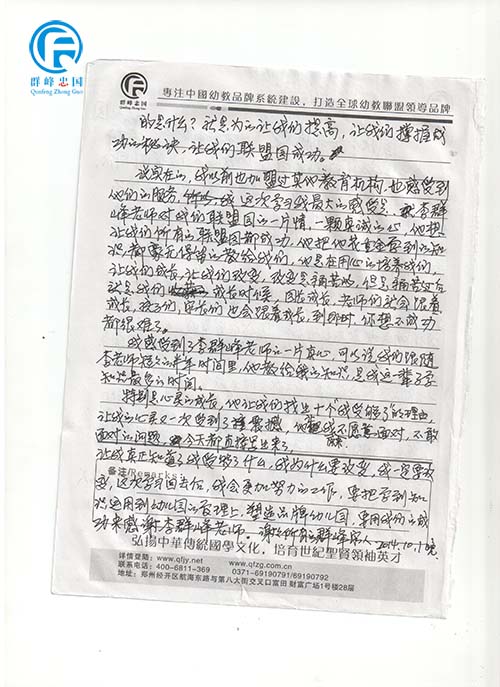 群峰忠国
Qunfeng Zhong Guo
群峰忠国
Qunfeng Zhong Guo
專注中國幼教品牌系統建設，打造全球幼教聯盟領導品牌
的是什么？就是为了让我们提高，让我们掌握成
功的秘诀，让我们联盟园成功。
说实在的，我以前也加盟过其他教育机构，也感受到
他们的服务，我这次学习我最大的感受是李群
峰老师对我们联盟园的一片情，一颗真诚的心，他想
让我们所有的联盟园都成功，他把他学到的知
识，都毫无保留的教给我们，他是在用心的培养我们，
让我们成长，让我们改变，改变是痛苦的，但是痛苦过后
就是我们成长时候，园长成长，老师们就会跟着
成长，孩子们，家长们也会跟着成长，到那时，你想不成功
都很难了。
我感受到了李群峰老师的一片真心，可以说我们跟随
李老师短短的半年时间里，他教给我的知识是我这一辈子学
知识最多的时间。
特别是心灵的成长，他让我们找出十个"我受够了"的理由
让我的心灵又一次受到了震撼，我不愿意面对，不敢
面对的问题，今天都直接呈出来了，
让我真正知道了我受够了什么，我为什么要改变，我一定要改
备注/Remarks:
变，这次学习回去后，我会更加努力的工作，要把学到知
识运用到幼儿园的管理上，塑造品牌幼儿园，要用我们的成
功来感谢李群峰老师。谢谢所有的群峰家人 2014.10.1晚
弘揚中華傳統國學文化，培育世紀聖賢領袖英才
详情登陆：www.qfjy.net www.qfzg.com.cn
联系电话：400-6811-369 0371-69190791/69190792
地址：郑州经开区航海东路与第八大街交叉口富田 财富广场1号楼28层